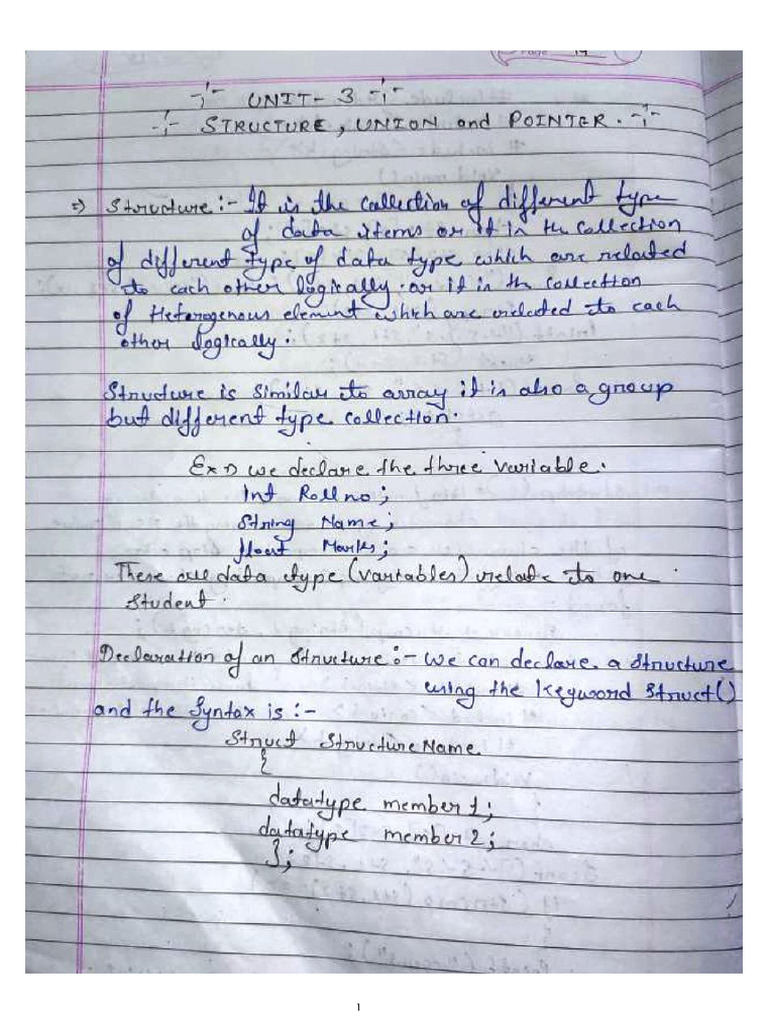 Page 19
-:- UNIT- 3 -:-
-:- STRUCTURE, UNION and POINTER. -:-
=> Structure:- It is the collection of different type
of data items or it is the collection
of different type of data type which are related
to each other logically. or it is the collection
of Heterogenous element which are related to each
other logically.
Structure is similar to array it is also a group
but different type collection.
Ex=> we declare the three variable.
Int Rollno;
String Name;
float Marks;
These are data type (variables) relate to one
student.
Declaration of an structure:- we can declare a structure
using the keyword struct()
and the Syntax is :-
Struct StructureName
{
datatype member 1;
datatype member 2;
};
1